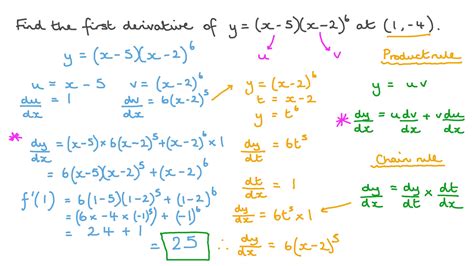 Find the first derivative of y = (x-5)(x-2)⁶ at (1,-4).
y = (x-5)(x-2)⁶
u = x-5 v = (x-2)⁶
du/dx = 1 dv/dx = 6(x-2)⁵
* dy/dx = (x-5)×6(x-2)⁵+(x-2)⁶×1
= 6(x-5)(x-2)⁵+(x-2)⁶
f'(1) = 6(1-5)(1-2)⁵+(1-2)⁶
= (6×-4×(-1)⁵)+(-1)⁶
= 24+1
= 25
u v
y = (x-2)⁶
t = x-2
y = t⁶
dy/dt = 6t⁵
dt/dx = 1
dy/dx = 6t⁵×1
∴ dy/dx = 6(x-2)⁵
Product rule
y = uv
* dy/dx = u dv/dx + v du/dx
Chain rule
dy/dx = dy/dt × dt/dx